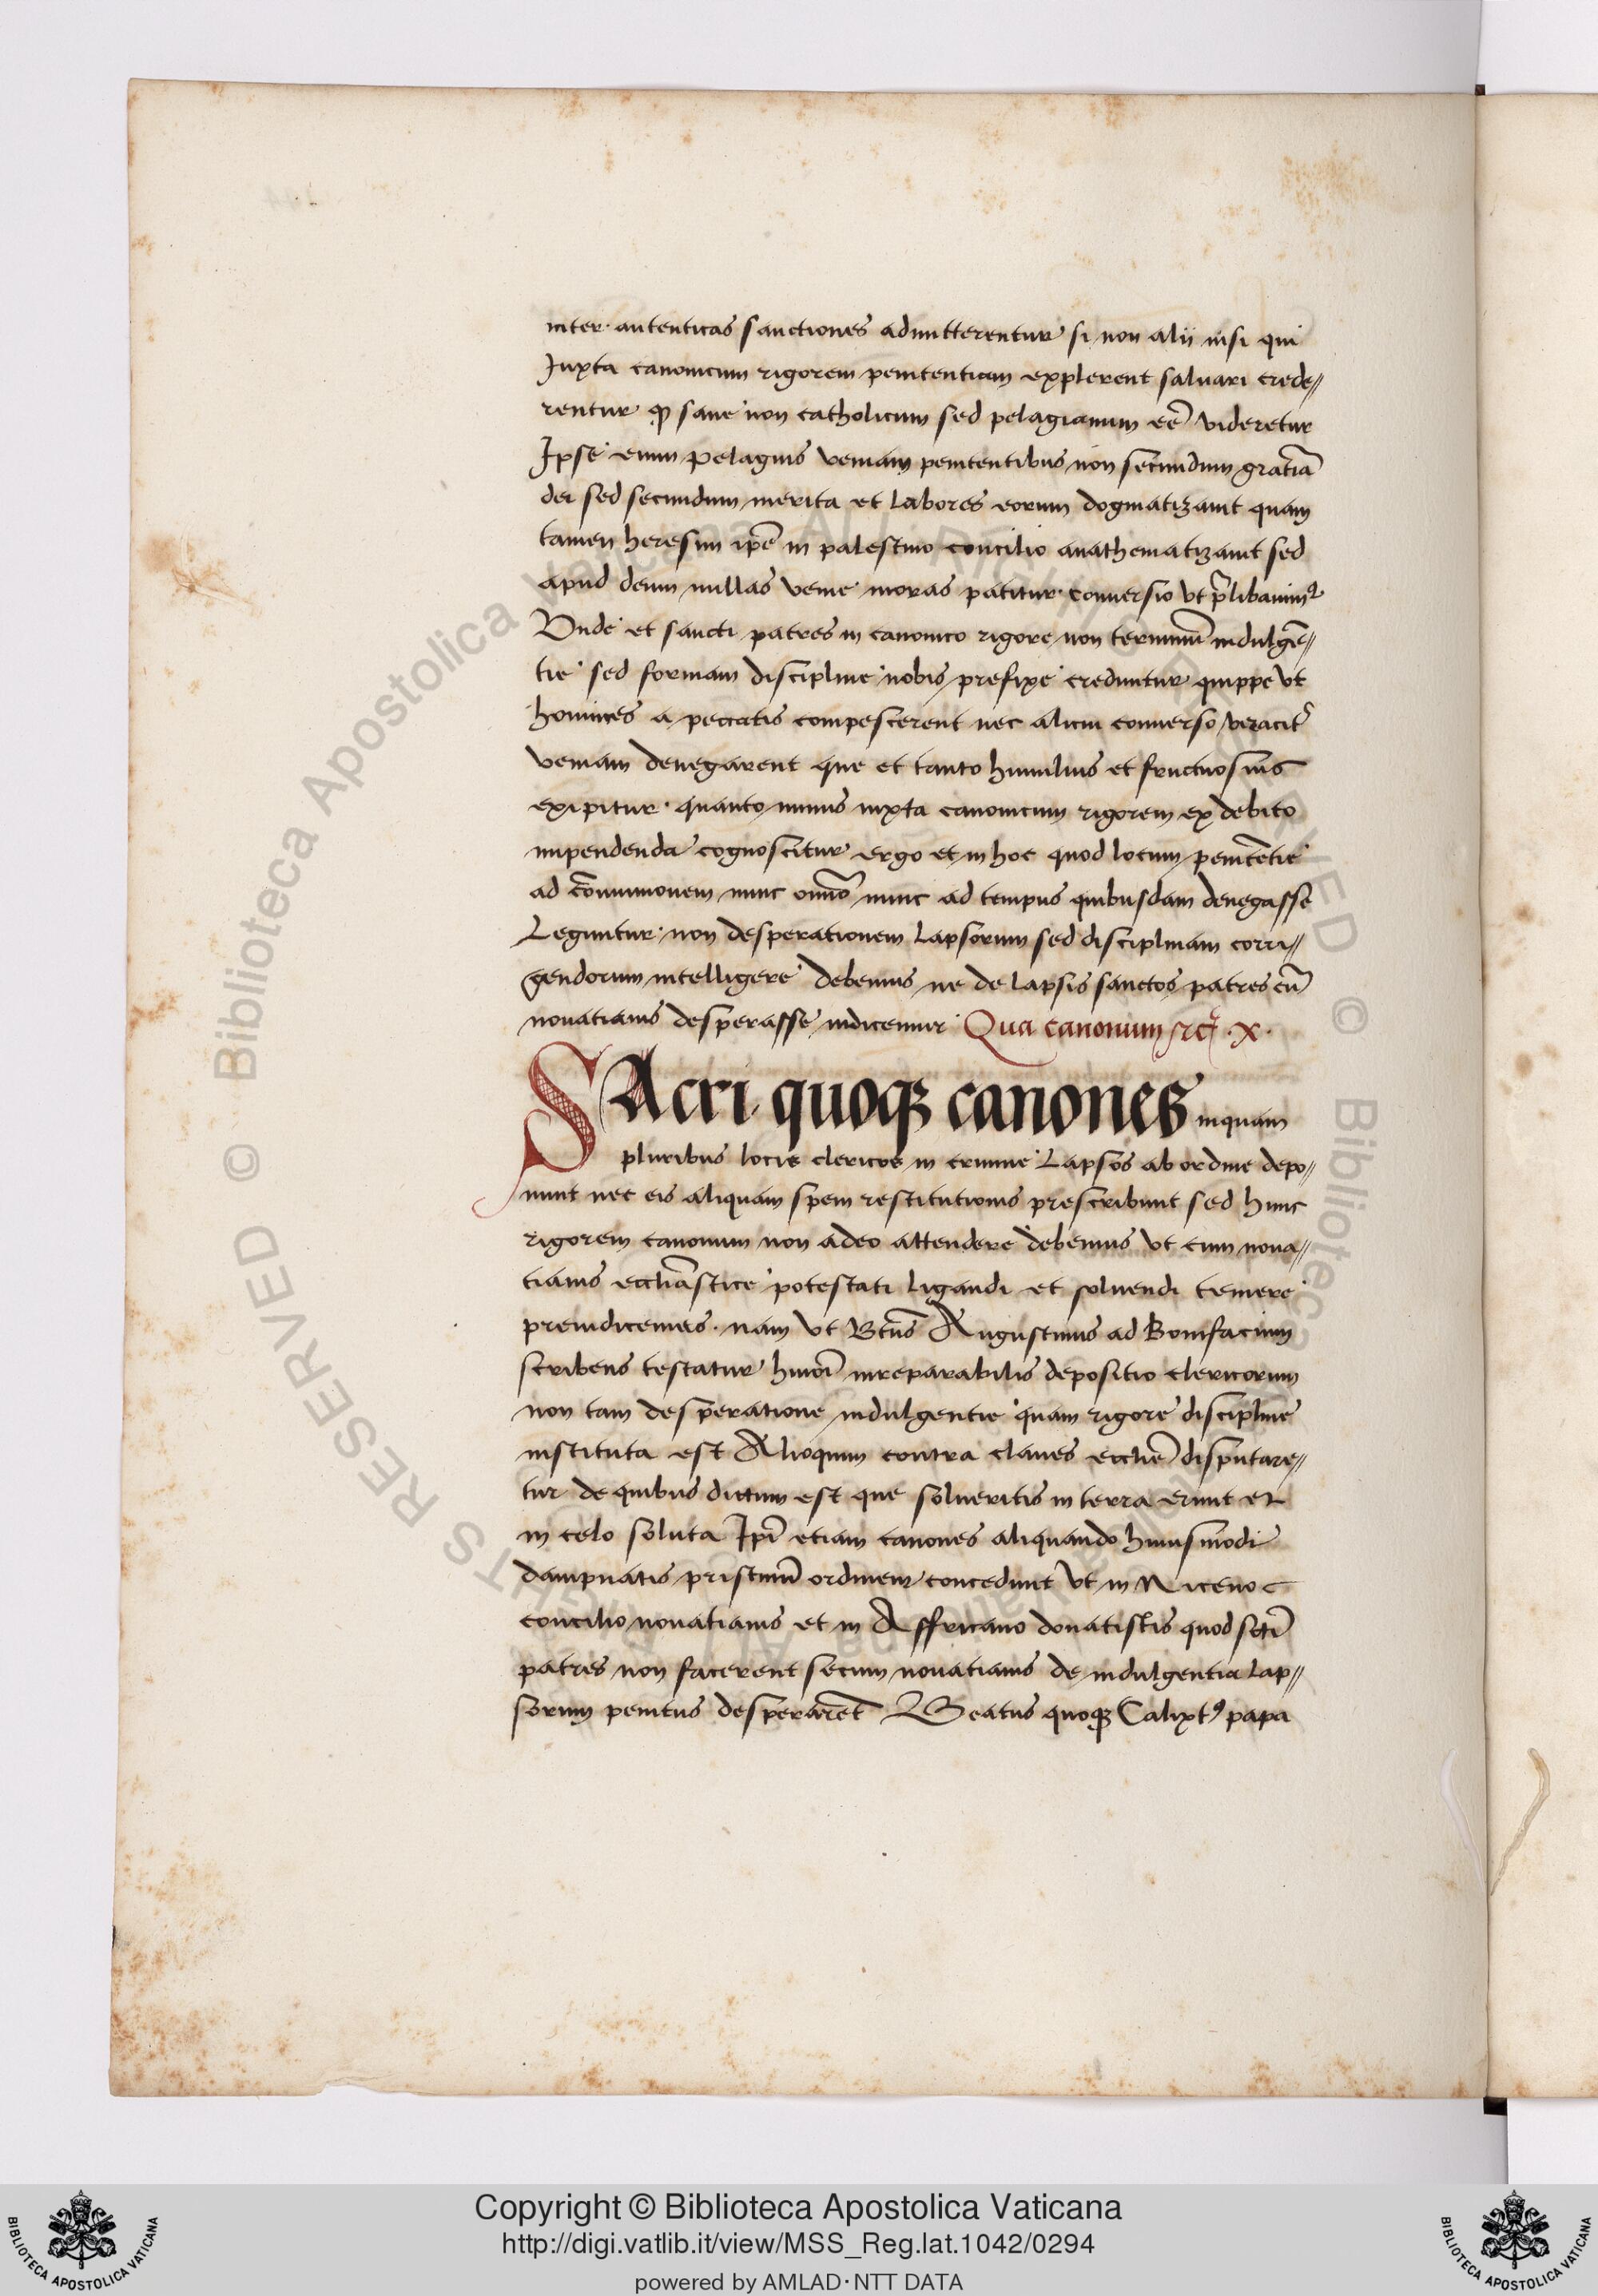 inter autenticas sanctiones admitterentur si non alii nisi qui
Juxta canonicum rigorem penitentiam explerent saluari crede//
rentur qd sane non catholicum sed pelagianum eē videretur
Ipse enim pelagius veniam penitentibus non secundum gratiā
dei sed secundum merita et labores eorum dogmatizauit quam
tamen heresim ipē in palestino concilio anathematizauit sed
apud deum nullas venie moras patitur conuersio vt p̄libauimꝰ
Vnde et sancti patres in canonico rigore non terminū indulgē//
tie sed formam discipline nobis prefixe creduntur quippe vt
homines a peccatis compescerent nec alicui conuerso veracit̄
veniam denegarent que et tanto humilius et fructuosius
exipitur quanto minus iuxta canonicum rigorem ex debito
impendenda cognoscitur ergo et in hoc quod locum penitētie
ad cōmunionem nunc omnō nunc ad tempus quibusdam denegasse
Leguntur non desperationem lapsorum sed disciplinam corri//
gendorum intelligere debemus ne de lapsis sanctos patres cū
nouatianis desperasse iudicemur Qua canonum .x.
SAcri quoqꝫ canones inquam
pluribus locis clericos in crimine Lapsos ab ordine depo//
nunt nec eis aliquam spem restitutionis prescribunt sed hunc
rigorem canonum non adeo attendere debemus vt cum noua//
tianis ecclīastice potestati ligandi et soluendi temere
preiudicemus. nam vt Btūs Augustinus ad Bonifacium
scribens testatur hmōi inreparabilis depositio clericorum
non tam desperatione indulgentie quam rigore discipline
instituta est Alioquin contra claues ecclīe disputare//
tur de quibus dictum est que solueritis in terra erunt et
in celo soluta Ipī etiam canones aliquando huiusmodi
dampnatis pristinū ordinem concedunt vt in Niceno
concilio nouatianis et in Affricano donatistis quod sctī
patres non facerent si cum nouatianis de indulgentia lap//
sorum penitus desperarēt Beatus quoqꝫ Calixtꝰ papa
© Biblioteca Apostolica Vaticana ALL RIGHTS RESERVED © Biblioteca Apostolica Vaticana ALL RIGHTS RESERVED
Copyright © Biblioteca Apostolica Vaticana
http://digi.vatlib.it/view/MSS_Reg.lat.1042/0294
powered by AMLAD·NTT DATA
BIBLIOTECA APOSTOLICA VATICANA
BIBLIOTECA APOSTOLICA VATICANA